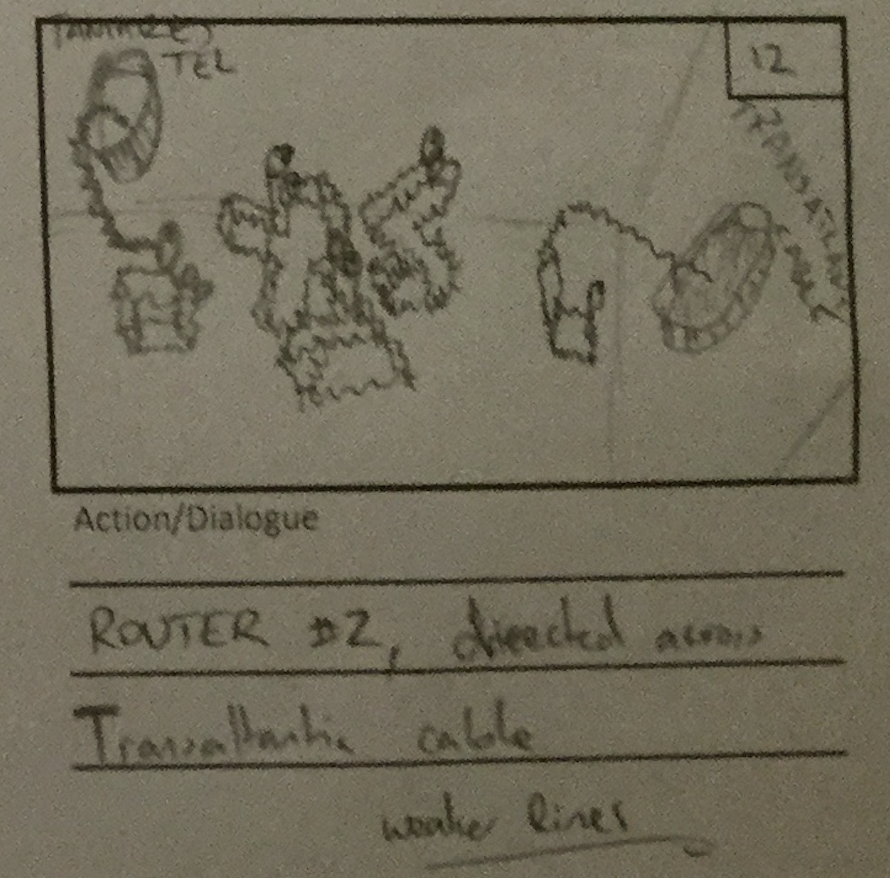 TEL
12
TRANSATLANTIC
CABLE
Action/Dialogue
ROUTER #2, directed across
Transatlantic cable
weaker lines